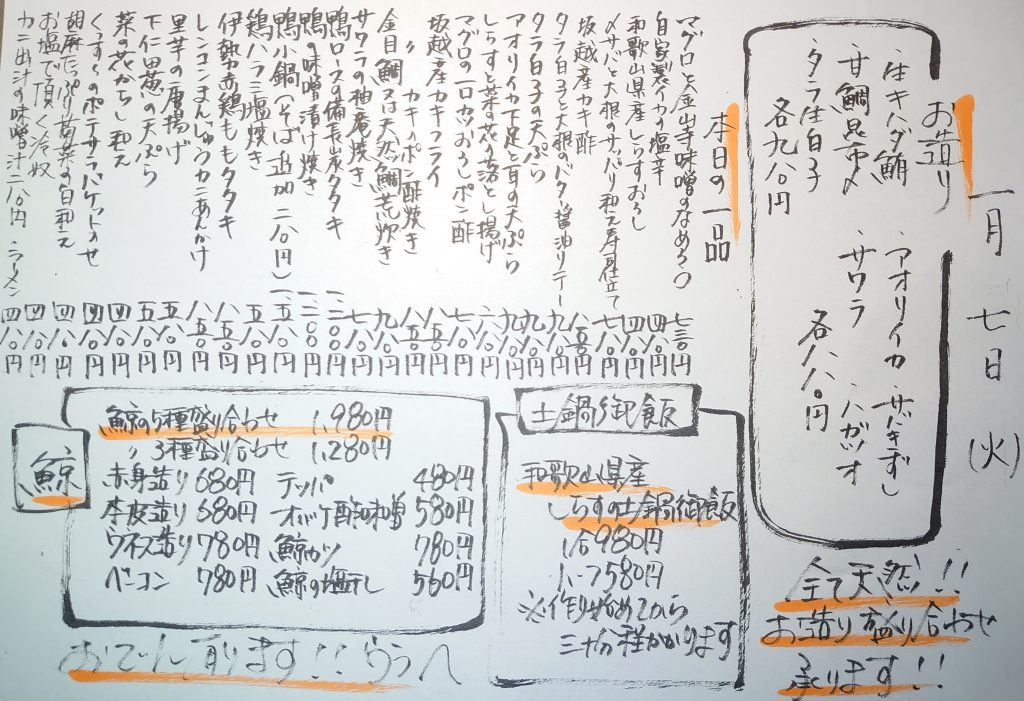 一月七日(火)
お造り
・生キハダ鮪 ・アオリイカ ・サバきずし
・甘鯛昆布〆 ・サワラ ・ハガツオ
・タラ生白子 各八八〇円
各九八〇円
本日の一品
マグロと金山寺味噌のなめろう 七三〇円
自家製イカの塩辛 四八〇円
和歌山県産しらすおろし 四八〇円
〆サバと大根のサッパリ和え寿司仕立て 七八〇円
坂越産カキ酢 八五〇円
タラ白子と大根のバター醤油ソテー 九八〇円
タラ白子の天ぷら 九八〇円
アオリイカ下足と耳の天ぷら 九八〇円
しらすと菜の花の落とし揚げ 六八〇円
マグロの一口カツおろしポン酢 七八〇円
坂越産カキフライ 八五〇円
〃 カキのポン酢炊き 八五〇円
金目鯛又は天然鯛荒炊き 九八〇円
サワラの柚庵焼き 七八〇円
鴨ロースの備長炭タタキ 一、二八〇円
鴨の味噌漬け焼き 一、二〇〇円
鴨小鍋(そば追加二八〇円) 一、二八〇円
鶏ハラミ塩焼き 五八〇円
伊勢赤鶏ももタタキ 八五〇円
レンコンまんじゅうカニあんかけ 八五〇円
里芋の唐揚げ 五八〇円
下仁田葱の天ぷら 五五〇円
菜の花からし和え 四八〇円
くんすいのポテサラバケットのせ 四八〇円
胡麻たっぷり菊菜の白和え 四八〇円
お塩で頂く冷奴 四八〇円
カニ出汁の味噌汁二八〇円 ラーメン 四八〇円
鯨
鯨の5種盛り合わせ 1,980円
〃 3種盛り合わせ 1,280円
赤身造り 680円 テッパ 480円
本皮造り 680円 オバケ酢味噌 580円
ウネス造り 780円 鯨カツ 780円
ベーコン 780円 鯨の塩干し 560円
おでん有ります!!
土鍋御飯
和歌山県産
しらすの土鍋御飯
1合980円
ハーフ580円
※作り始めてから
三十分程かかります
全て天然!!
お造り盛り合わせ
承ります!!